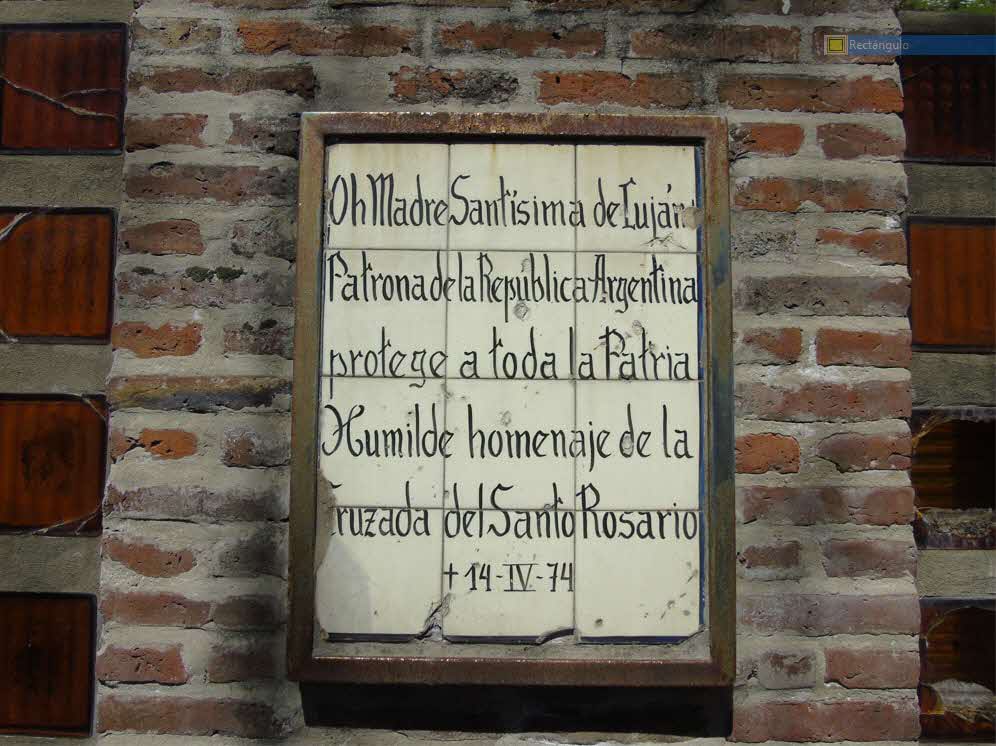 Rectángulo
Oh Madre Santísima de Luján
Patrona de la República Argentina
protege a toda la Patria
Humilde homenaje de la
Cruzada del Santo Rosario
+ 14-IV-74